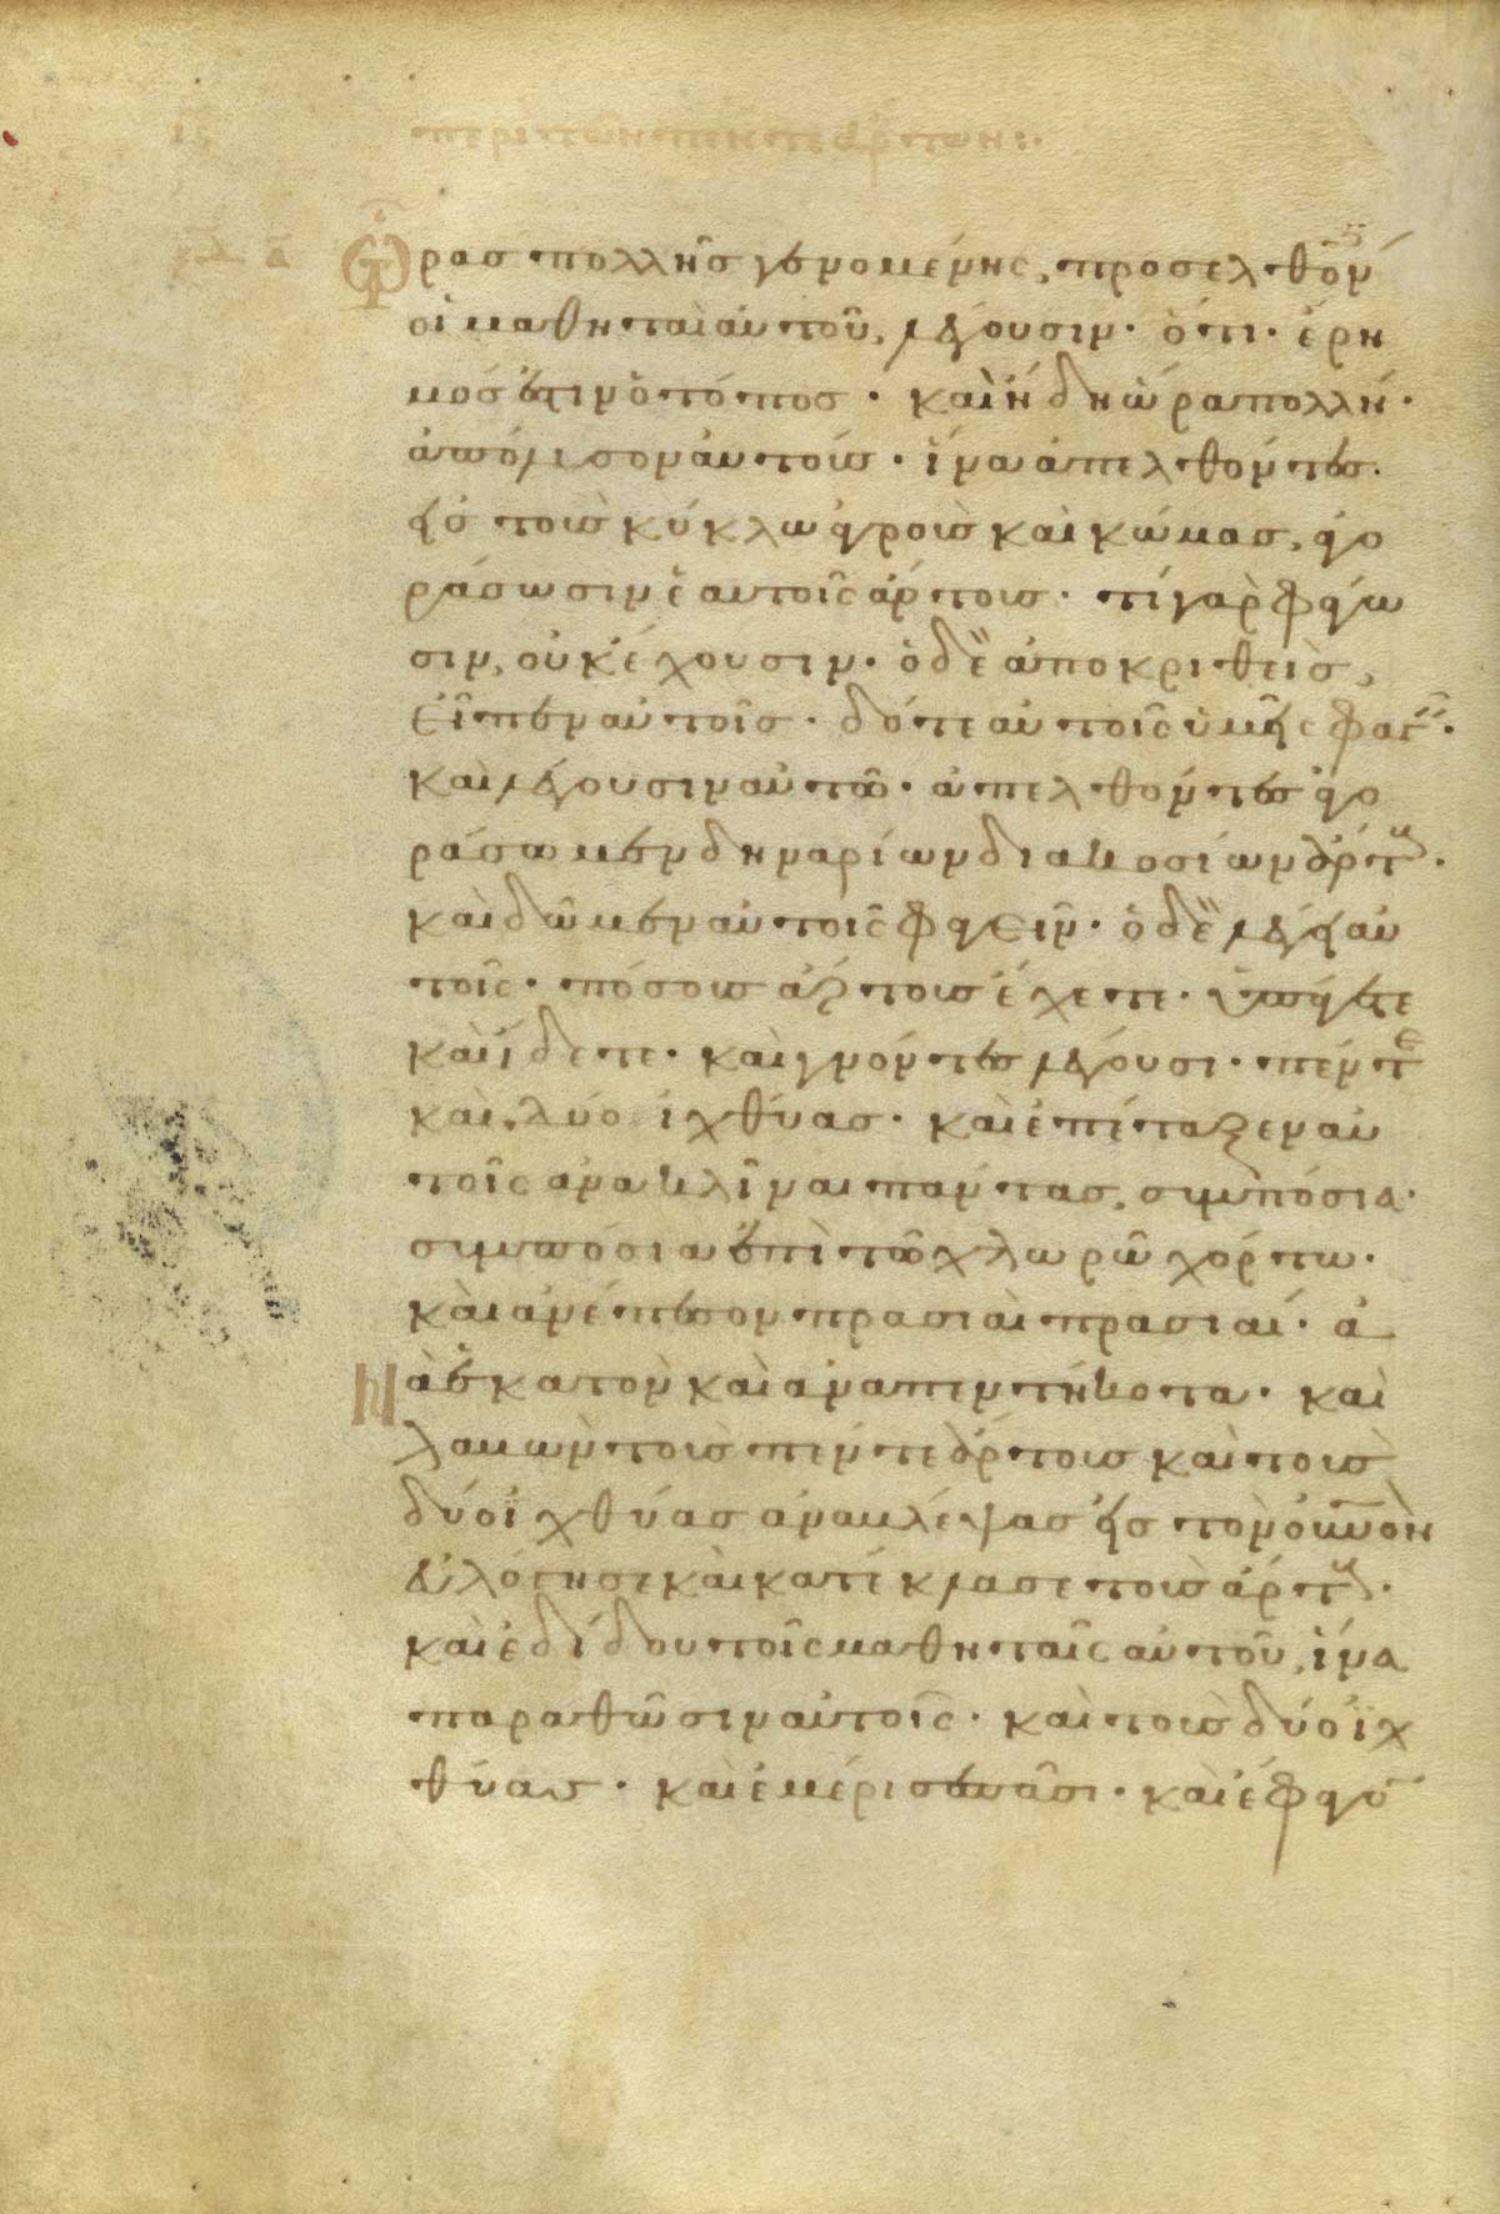 ις περὶ τῶν πέντε ἄρτων:
ξδ α Ὥρας πολλῆς γενομένης, προσελθόντ
οἱ μαθηταὶ αὐτοῦ, λέγουσιν· ὅτι· ἔρη
μός ἐστιν ὁ τόπος· καὶ ἤδη ὥρα πολλή·
ἀπόλυσον αὐτούς· ἵνα ἀπελθόντες·
εἰς τοὺς κύκλω ἀγροὺς καὶ κώμας, ἀγο
ράσωσιν ἑαυτοῖς ἄρτους· τί γὰρ φάγω
σιν, οὐκ ἔχουσιν· ὁ δὲ ἀποκριθεὶς,
εἶπεν αὐτοῖς· δότε αὐτοῖς ὑμεῖς φαγεῖν·
καὶ λέγουσιν αὐτῶ· ἀπελθόντες ἀγο
ράσωμεν δηναρίων διακοσίων ἄρτους·
καὶ δῶμεν αὐτοῖς φαγεῖν· ὁ δὲ λέγει αὐ
τοῖς· πόσους ἄρτους ἔχετε· ὑπάγετε
καὶ ἴδετε· καὶ γνόντες λέγουσι· πέντε
καὶ δύο ἰχθύας· καὶ ἐπέταξεν αὐ
τοῖς ἀνακλῖναι πάντας, συμπόσια·
συμπόσια ἐπὶ τῶ χλωρῶ χόρτω·
καὶ ἀνέπεσον πρασιαὶ πρασιαί· ἀ
νὰ ἑκατὸν καὶ ἀνὰ πεντήκοντα· καὶ
λαβὼν τοὺς πέντε ἄρτους καὶ τοὺς
δύο ἰχθύας ἀναβλέψας εἰς τὸν οὐνὸν
εὐλόγησε καὶ κατέκλασε τοὺς ἄρτους·
καὶ ἐδίδου τοῖς μαθηταῖς αὐτοῦ, ἵνα
παραθῶσιν αὐτοῖς· καὶ τοὺς δύο ἰχ
θύας· καὶ ἐμέρισεν πᾶσι· καὶ ἔφαγο